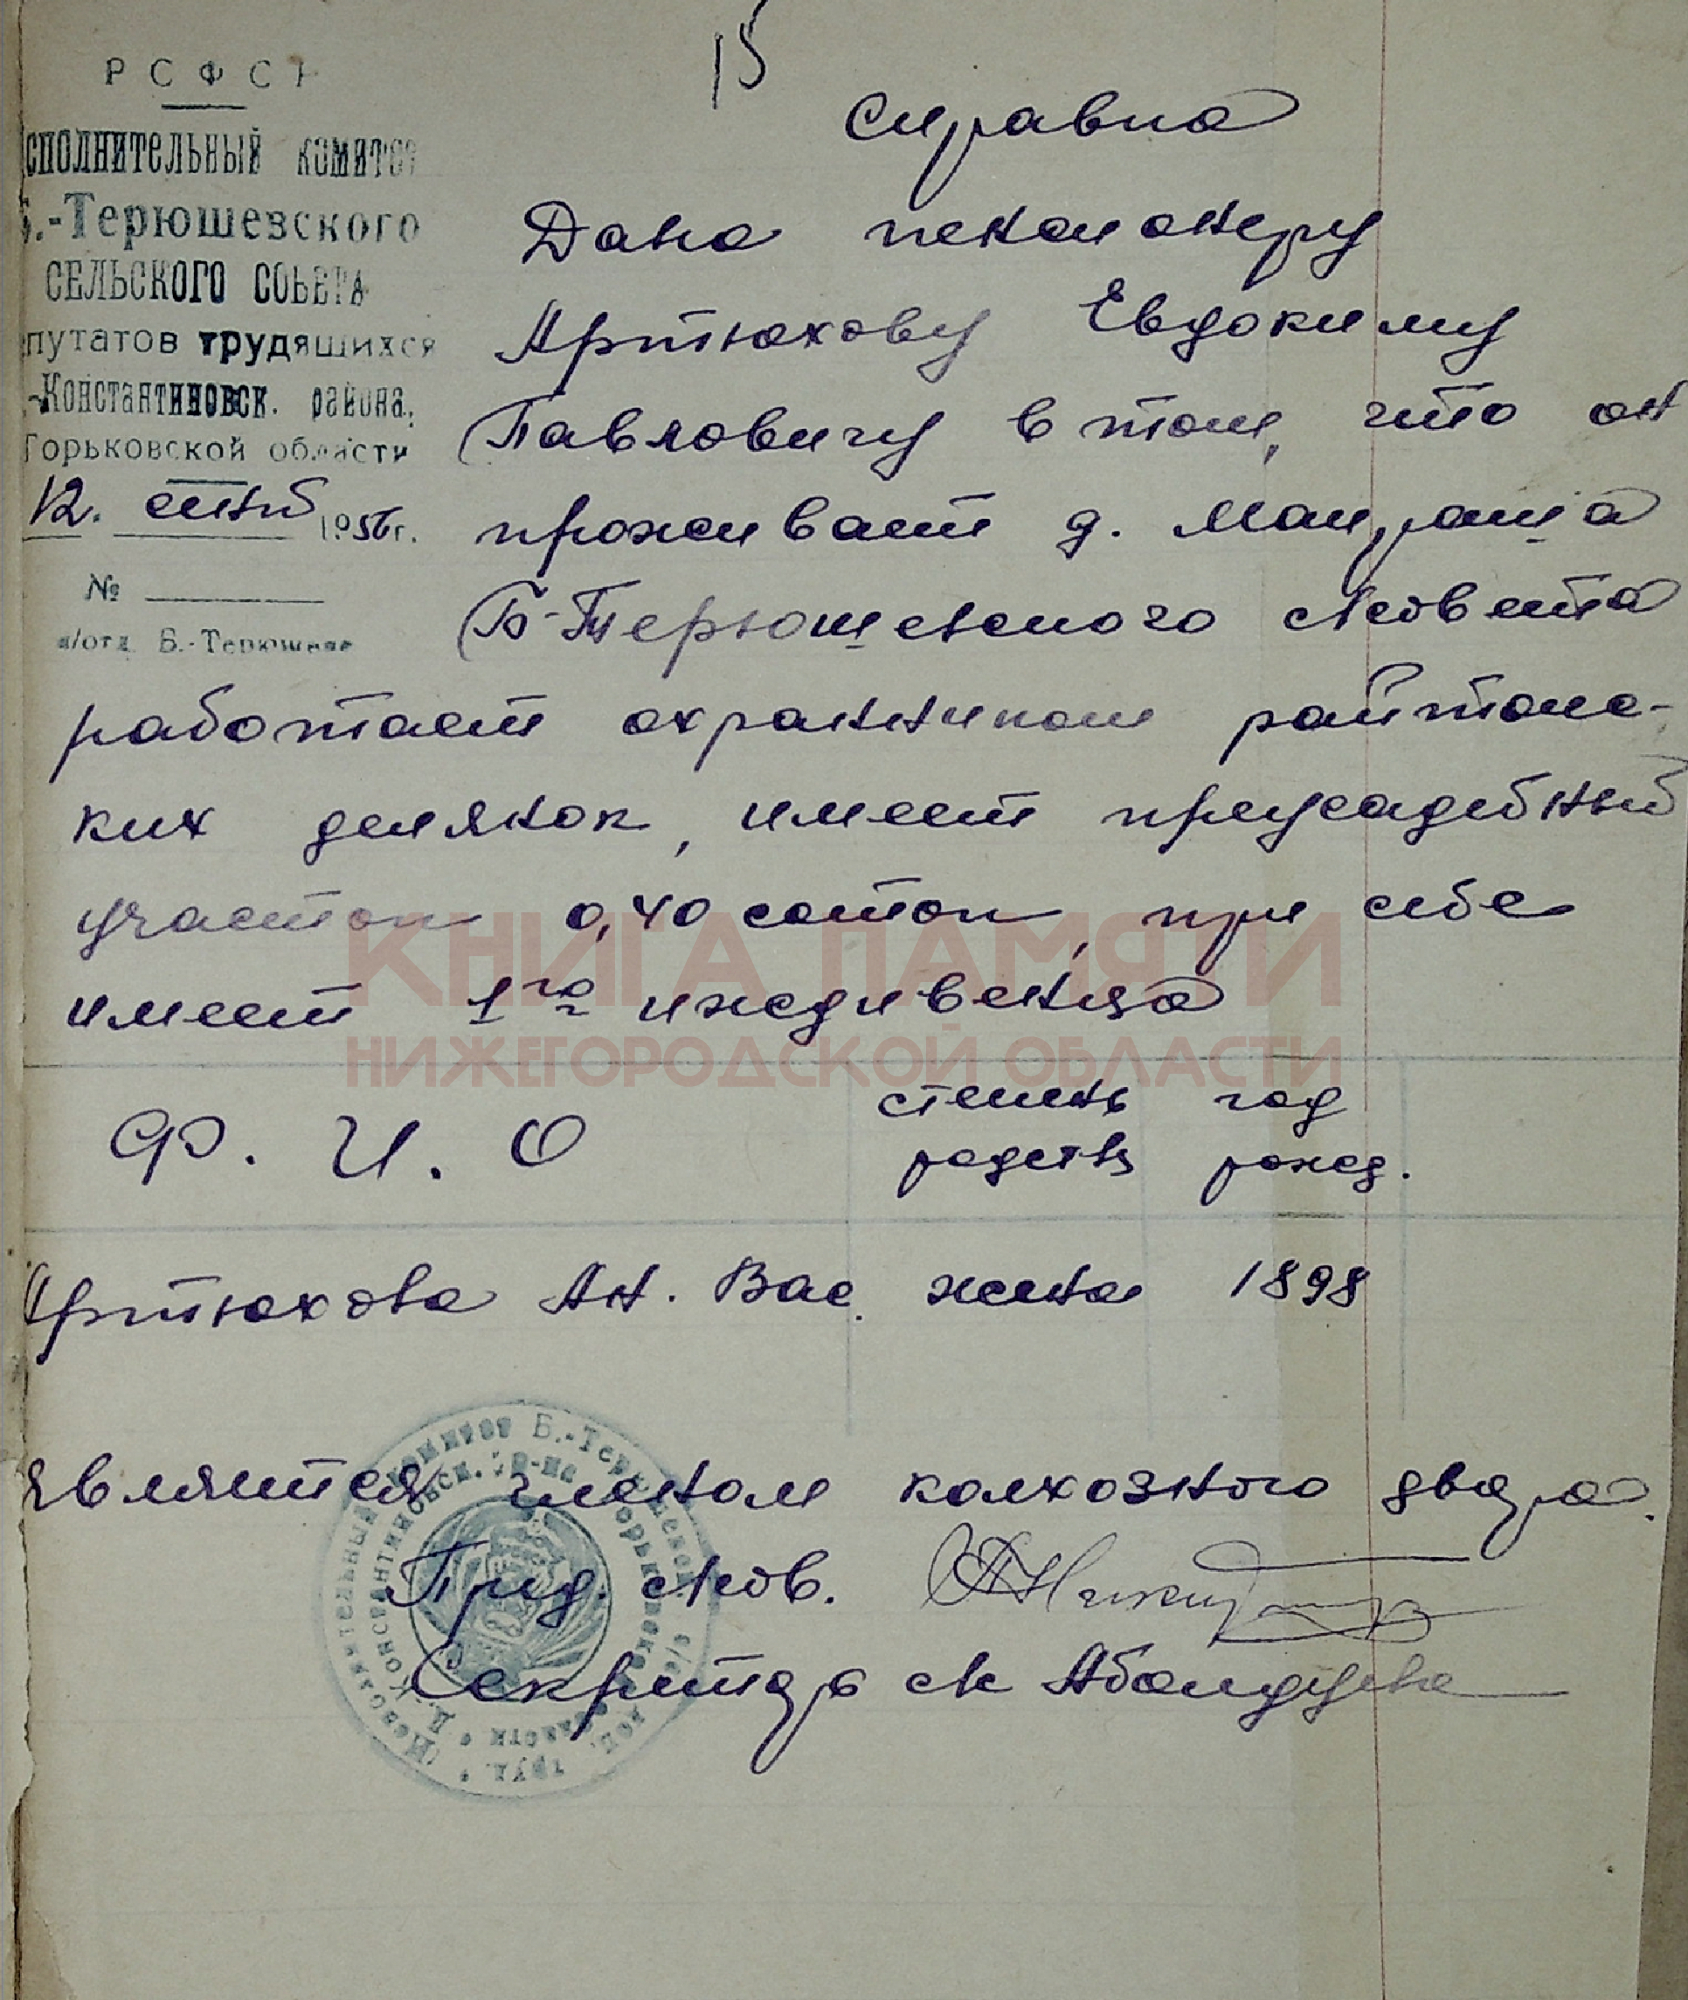 15
РСФСР
сполнительный комитет
Б.-Терюшевского
сельского совета
путатов трудящихся
.-Константиновск. района,
Горьковской области
12. сентб 1956 г.
№
п/отд. Б.-Терюшеве
Справка
Дана пенсионеру
Артюхову Евдокиму
Павловичу в том, что он
проживает д.
Б-Терюшевского с/совета
работает охранником райтопс-
ких делянок, имеет приусадебный
участок 0,40 соток, при себе
имеет 1го иждивенца
Ф. И. О степень родств год рожд.
Артюхова Ан. Вас. жена 1898
является членом колхозного двора.
Пред. с/сов.
Секретарь с/с
Исполнительный комитет Б.-Терюшевского с/с деп. труд.
Д. Константиновск. р-на Горьковской области
КНИГА ПАМЯТИ
НИЖЕГОРОДСКОЙ ОБЛАСТИ